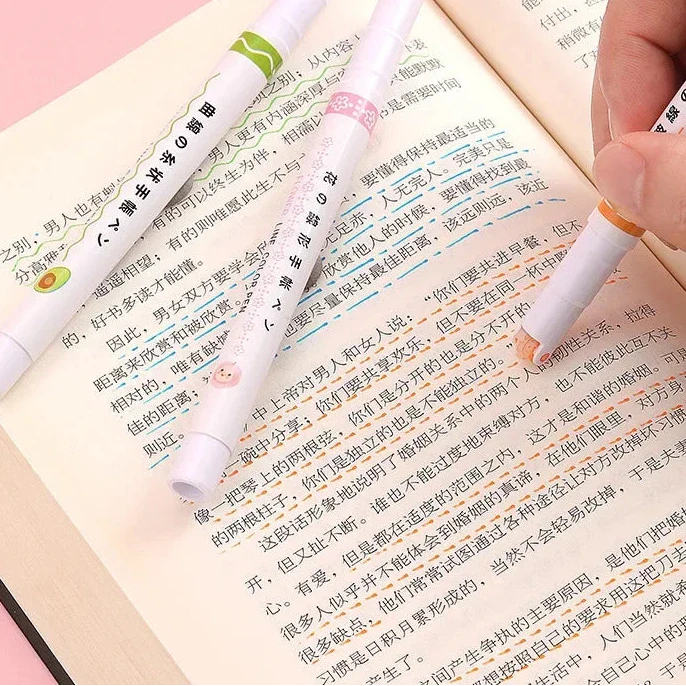 之别;男人也有
之别;从内容
男人更有内涵深厚与
只能默默
分高雅
有的可以终生为伴,相濡以
是需要时间
的,遥遥相望;有的则唯愿此生不与
要懂得保持最适当的
的,好书多读才能懂。
无足赤,人无完人。完美只是
因此,男女双方要学会
欣赏他人的时候,要懂得找到最
距离来欣赏和被欣赏。
也要尽量保持最佳距离,该远则远,该近
相对的,唯有缺
佳的距离,
则近。
中上帝对男人和女人说:“你们要共进早餐,但不
一碗中分享;你们要共享欢乐,但不要在同一杯中
像一把琴上的两根弦,你们是分开的也是分不开的
的两根柱子,你们是独立的也是不能独立的。”
这段话形象地说明了婚姻关系中的两个人的韧性关系,拉得
开,但又扯不断。谁也不能过度地束缚对方,也不能彼此互不关
心。有爱,但是都在适度的范围之内,这才是和谐的婚姻。可
很多人似乎并不能体会到婚姻的真谛,在他们眼里,对方身
很多缺点,他们常常试图通过各种途径让对方改掉坏习惯
习惯是日积月累形成的,当然不会轻易改掉,于是夫妻
产生了。
间产生争执的主要原因,是他们把婚
想按照自己的要求用这把刀去
生活中,人们当然就希
会自己心中的理
曲線の糸状手帳ペン
花の線形手帳ペン
線の
付出,
稍微有
了对